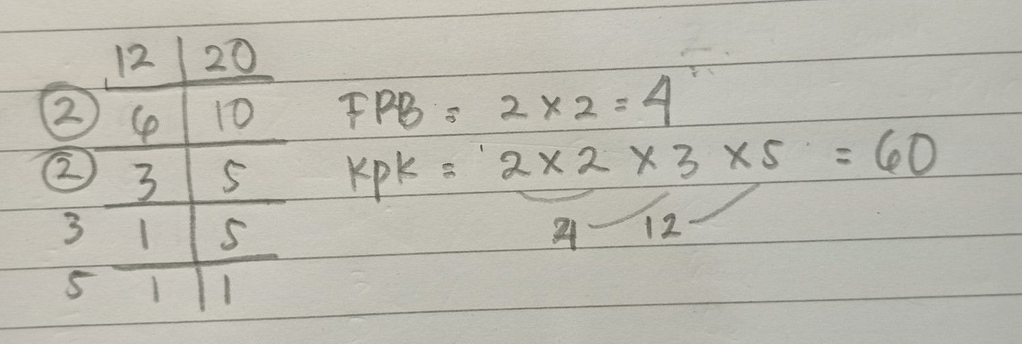 12 | 20
2 6 | 10 FPB = 2 x 2 = 4
2 3 | 5 KPK = 2 x 2 x 3 x 5 = 60
3 1 | 5 4 12
5 1 | 1